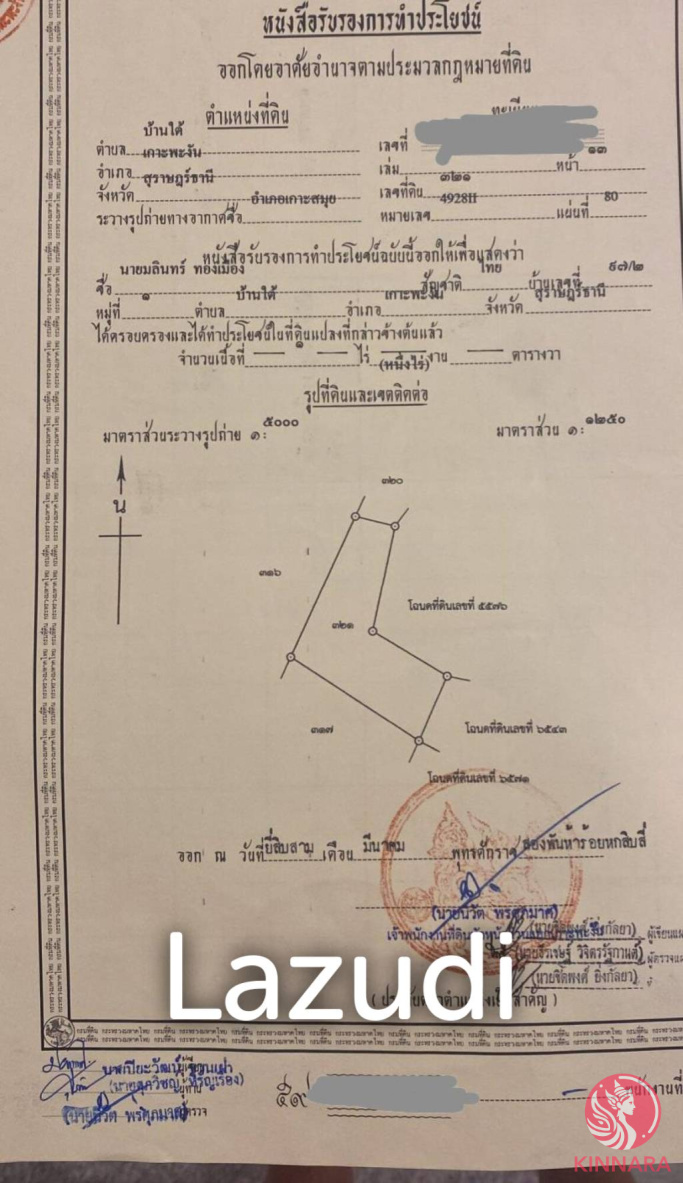 หนังสือรับรองการทำประโยชน์
ออกโดยอาศัยอำนาจตามประมวลกฎหมายที่ดิน
ตำแหน่งที่ดิน
ตำบล บ้านใต้ เลขที่
อำเภอ เกาะพะงัน เล่ม หน้า ๑๓
จังหวัด สุราษฎร์ธานี เลขที่ดิน ๓๒๑
ระวางรูปถ่ายทางอากาศชื่อ อำเภอเกาะสมุย หมายเลข 4928II แผ่นที่ 80
หนังสือรับรองการทำประโยชน์ฉบับนี้ออกให้เพื่อแสดงว่า
ชื่อ นายมลินทร์ ทองเมือง สัญชาติ ไทย บ้านเลขที่ ๙๗/๒
หมู่ที่ ๑ ตำบล บ้านใต้ อำเภอ เกาะพะงัน จังหวัด สุราษฎร์ธานี
ได้ครอบครองและได้ทำประโยชน์ในที่ดินแปลงที่กล่าวข้างต้นแล้ว
จำนวนเนื้อที่ ๑ ไร่ งาน ตารางวา
(หนึ่งไร่)
รูปที่ดินและเขตติดต่อ
มาตราส่วนระวางรูปถ่าย ๑: ๕๐๐๐ มาตราส่วน ๑: ๑๒๕๐
น
๓๒๐
๓๑๖
โฉนดที่ดินเลขที่ ๕๕๗๖
๓๒๑
๓๑๗
โฉนดที่ดินเลขที่ ๖๕๔๓
โฉนดที่ดินเลขที่ ๖๕๗๑
ออก ณ วันที่ ยี่สิบสาม เดือน มีนาคม พุทธศักราช สองพันห้าร้อยหกสิบสี่
(นายนิวัต พรศุภมาศ)
Lazudi
KINNARA